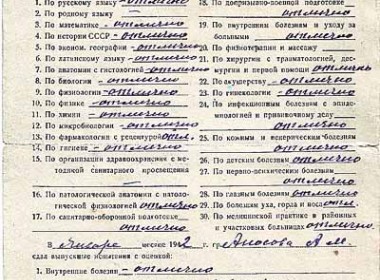 1. По русскому языку - отлично
2. По родному языку
3. По математике - отлично
4. По истории СССР - отлично
5. По эконом. географии - отлично
6. По латинскому языку - отлично
7. По анатомии с гистологией - отлично
8. По биологии - отлично
9. По физиологии - отлично
10. По физике - отлично
11. По химии - отлично
12. По микробиологии - отлично
13. По фармакологии с рецептурой отл.
14. По гигиене - отлично
15. По организации здравоохранения с методикой санитарного просвещения
16. По патологической анатомии с патологической физиологией отлично
17. По санитарно-оборонной подготовке отлично
18. По допризывно-военной подготовке отлично
19. По внутренним болезням и уходу за больными отлично
20. По физиотерапии и массажу
21. По хирургии с травматологией, десмургии и первой помощи отлично
22. По акушерству - отлично
23. По гинекологии - отлично
24. По инфекционным болезням с эпидемиологией и прививочному делу отлично
25. По кожным и венерическим болезням отлично
26. По детским болезням отлично
27. По нервно-психическим болезням отлично
28. По глазным болезням отлично
29. По болезням уха, горла и носа отл.
30. По медицинской практике в районных и участковых больницах отлично
В январе месяце 1942 г. гр. Аносова А. М.
сдал выпускные испытания с оценкой:
1. Внутренние болезни - отлично